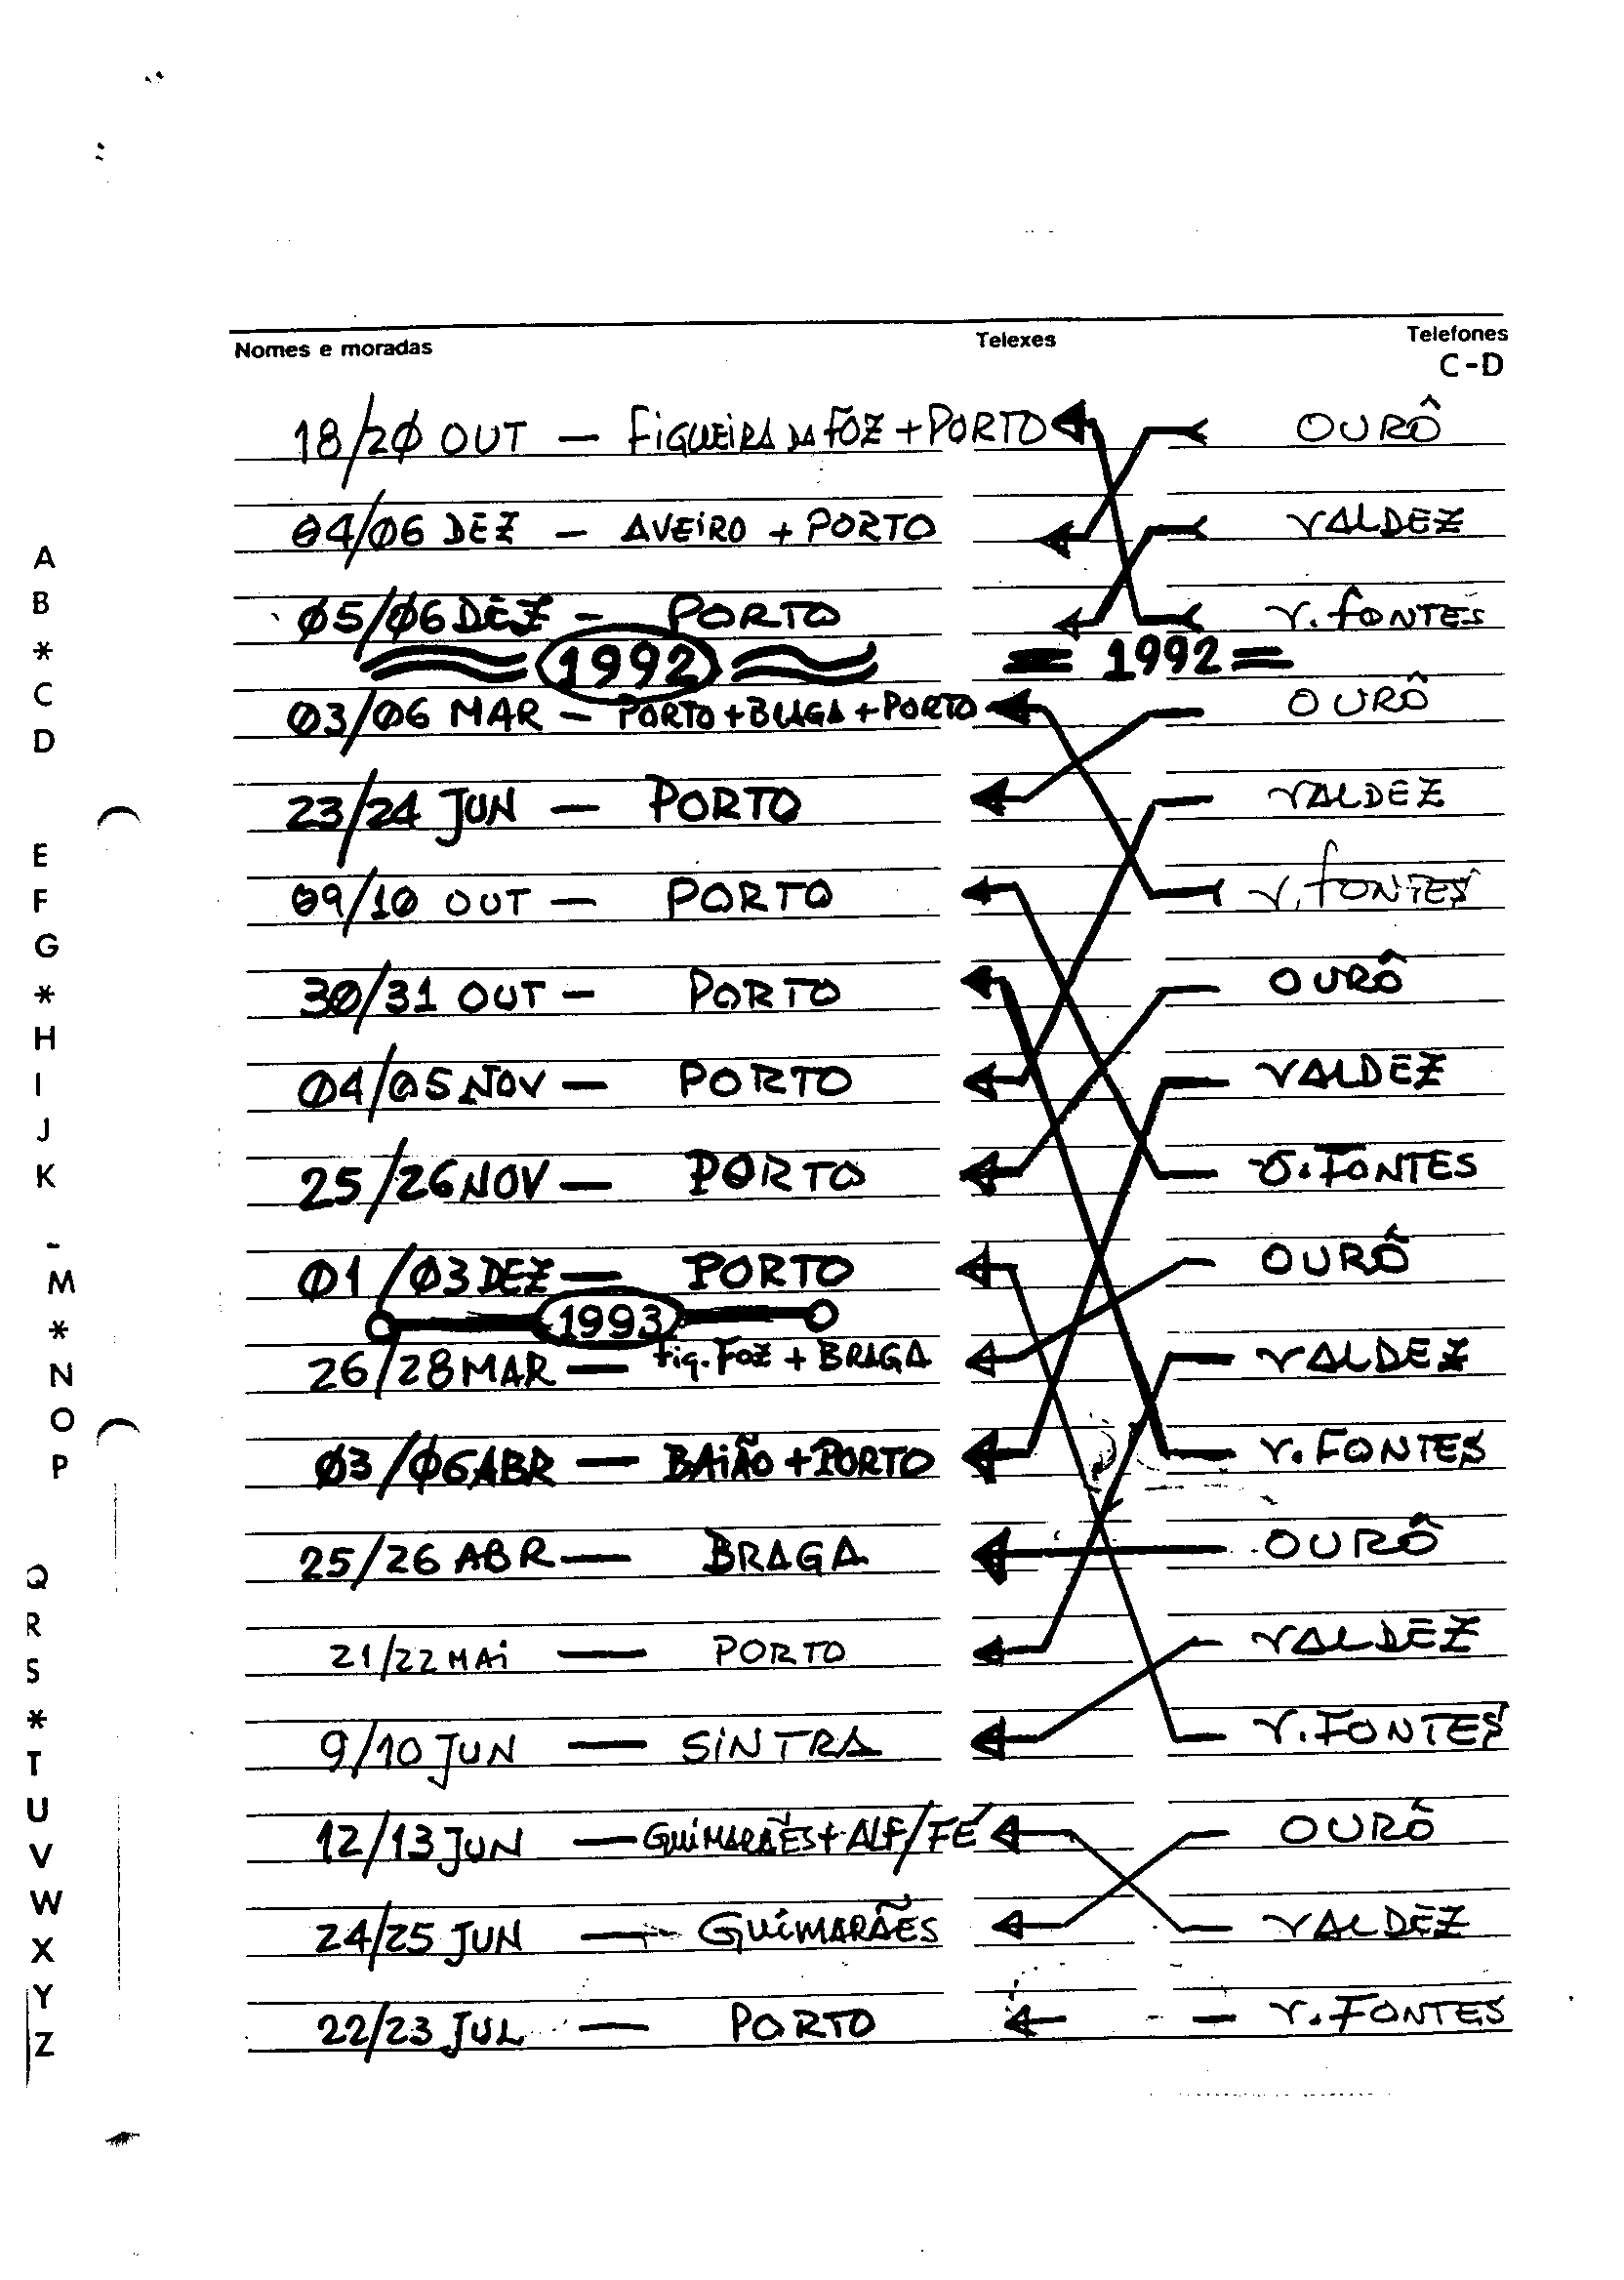 Nomes e moradas Telexes Telefones
C-D
18/20 OUT — FIGUEIRA DA FOZ + PORTO OURÔ
04/06 DEZ — AVEIRO + PORTO VALDEZ
05/06 DEZ — PORTO V. FONTES
1992 = 1992 =
03/06 MAR — PORTO + BRAGA + PORTO OURÔ
23/24 JUN — PORTO VALDEZ
09/10 OUT — PORTO V. FONTES
30/31 OUT — PORTO OURÔ
04/05 NOV — PORTO VALDEZ
25/26 NOV — PORTO V. FONTES
01/03 DEZ — PORTO OURÔ
1993
26/28 MAR — Fig. FOZ + BRAGA VALDEZ
03/06 ABR — BAIÃO + PORTO V. FONTES
25/26 ABR — BRAGA OURÔ
21/22 MAI — PORTO VALDEZ
9/10 JUN — SINTRA V. FONTES
12/13 JUN — GUIMARÃES + ALF/FÉ OURÔ
24/25 JUN — GUIMARÃES VALDEZ
22/23 JUL — PORTO V. FONTES
A
B
*
C
D
E
F
G
*
H
I
J
K
-
M
*
N
O
P
Q
R
S
*
T
U
V
W
X
Y
Z